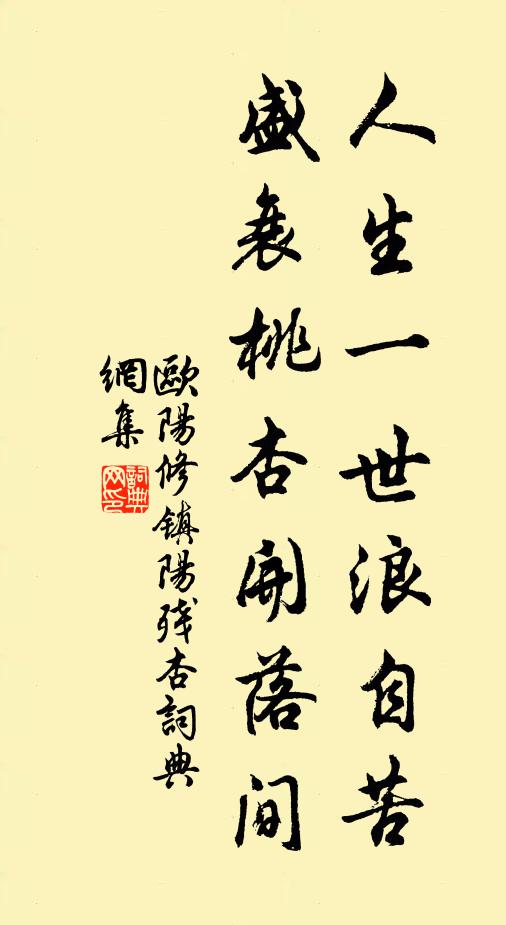 人生一世浪自苦
盛衰桃杏開落間
歐陽修鎮陽殘杏詞典
網集
詞典
网印